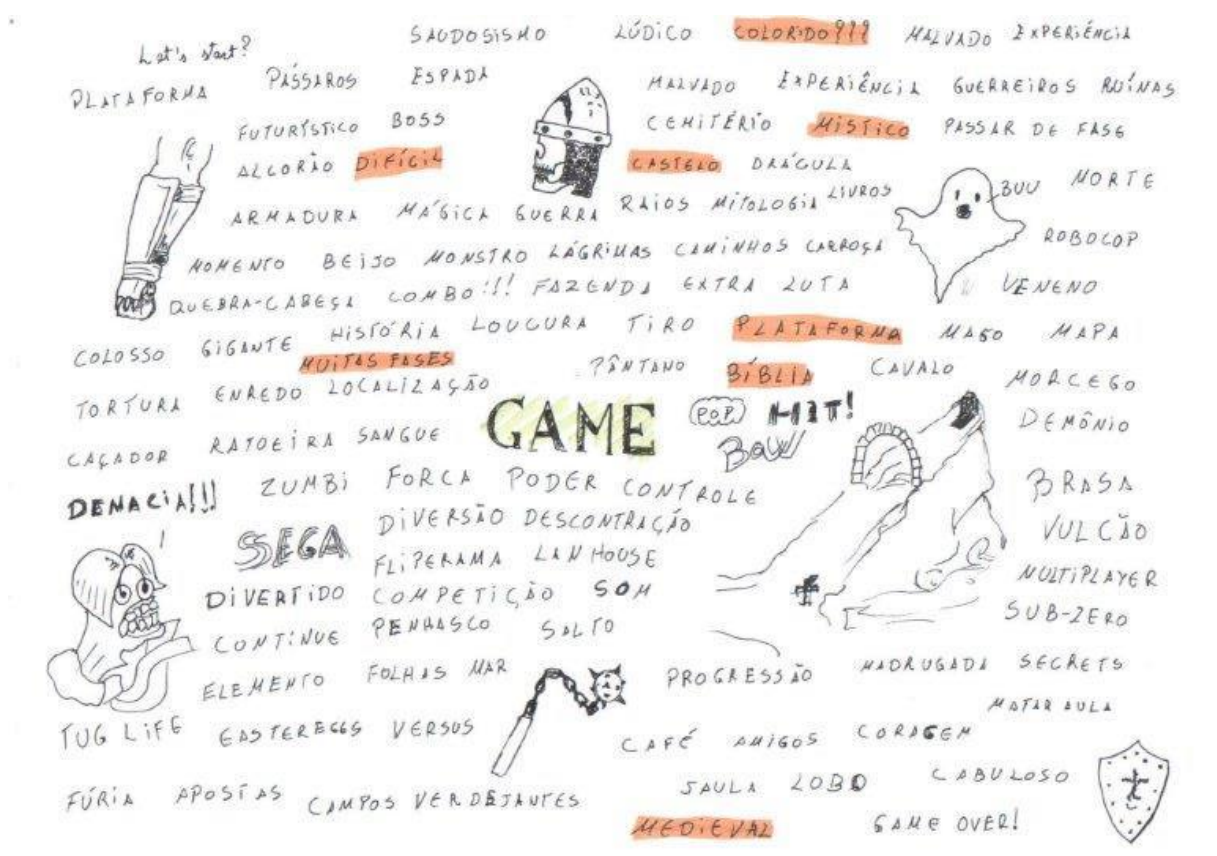 SAUDOSISMO LÚDICO COLORIDO??? MALVADO EXPERIÊNCIA
Let's start?
PLATAFORMA PÁSSAROS ESPADA MALVADO EXPERIÊNCIA GUERREIROS RUÍNAS
FUTURÍSTICO BOSS CEMITÉRIO MÍSTICO PASSAR DE FASE
ALCORÃO DIFÍCIL CASTELO DRÁCULA
ARMADURA MÁGICA GUERRA RAIOS MITOLOGIA LIVROS BUU MORTE
MOMENTO BEIJO MONSTRO LÁGRIMAS CAMINHOS CARROÇA ROBOCOP
QUEBRA-CABEÇA COMBO!!! FAZENDA EXTRA LUTA VENENO
COLOSSO GIGANTE HISTÓRIA LOUCURA TIRO PLATAFORMA MAGO MAPA
MUITAS FASES PÂNTANO BÍBLIA CAVALO MORCEGO
TORTURA ENREDO LOCALIZAÇÃO
GAME POP HIT! DEMÔNIO
CAÇADOR RATOEIRA SANGUE BOW
DEMACIA!!! ZUMBI FORCA PODER CONTROLE BRASA
SEGA DIVERSÃO DESCONTRAÇÃO VULCÃO
FLIPERAMA LAN HOUSE
DIVERTIDO COMPETIÇÃO SOM MULTIPLAYER
CONTINUE PENHASCO SALTO SUB-ZERO
!
ELEMENTO FOLHAS MAR PROGRESSÃO MADRUGADA SECRETS
MATAR AULA
TUG LIFE EASTEREGGS VERSUS CAFÉ AMIGOS CORAGEM
FÚRIA APOSTAS CAMPOS VERDEJANTES JAULA LOBO CABULOSO
MEDIEVAL GAME OVER!